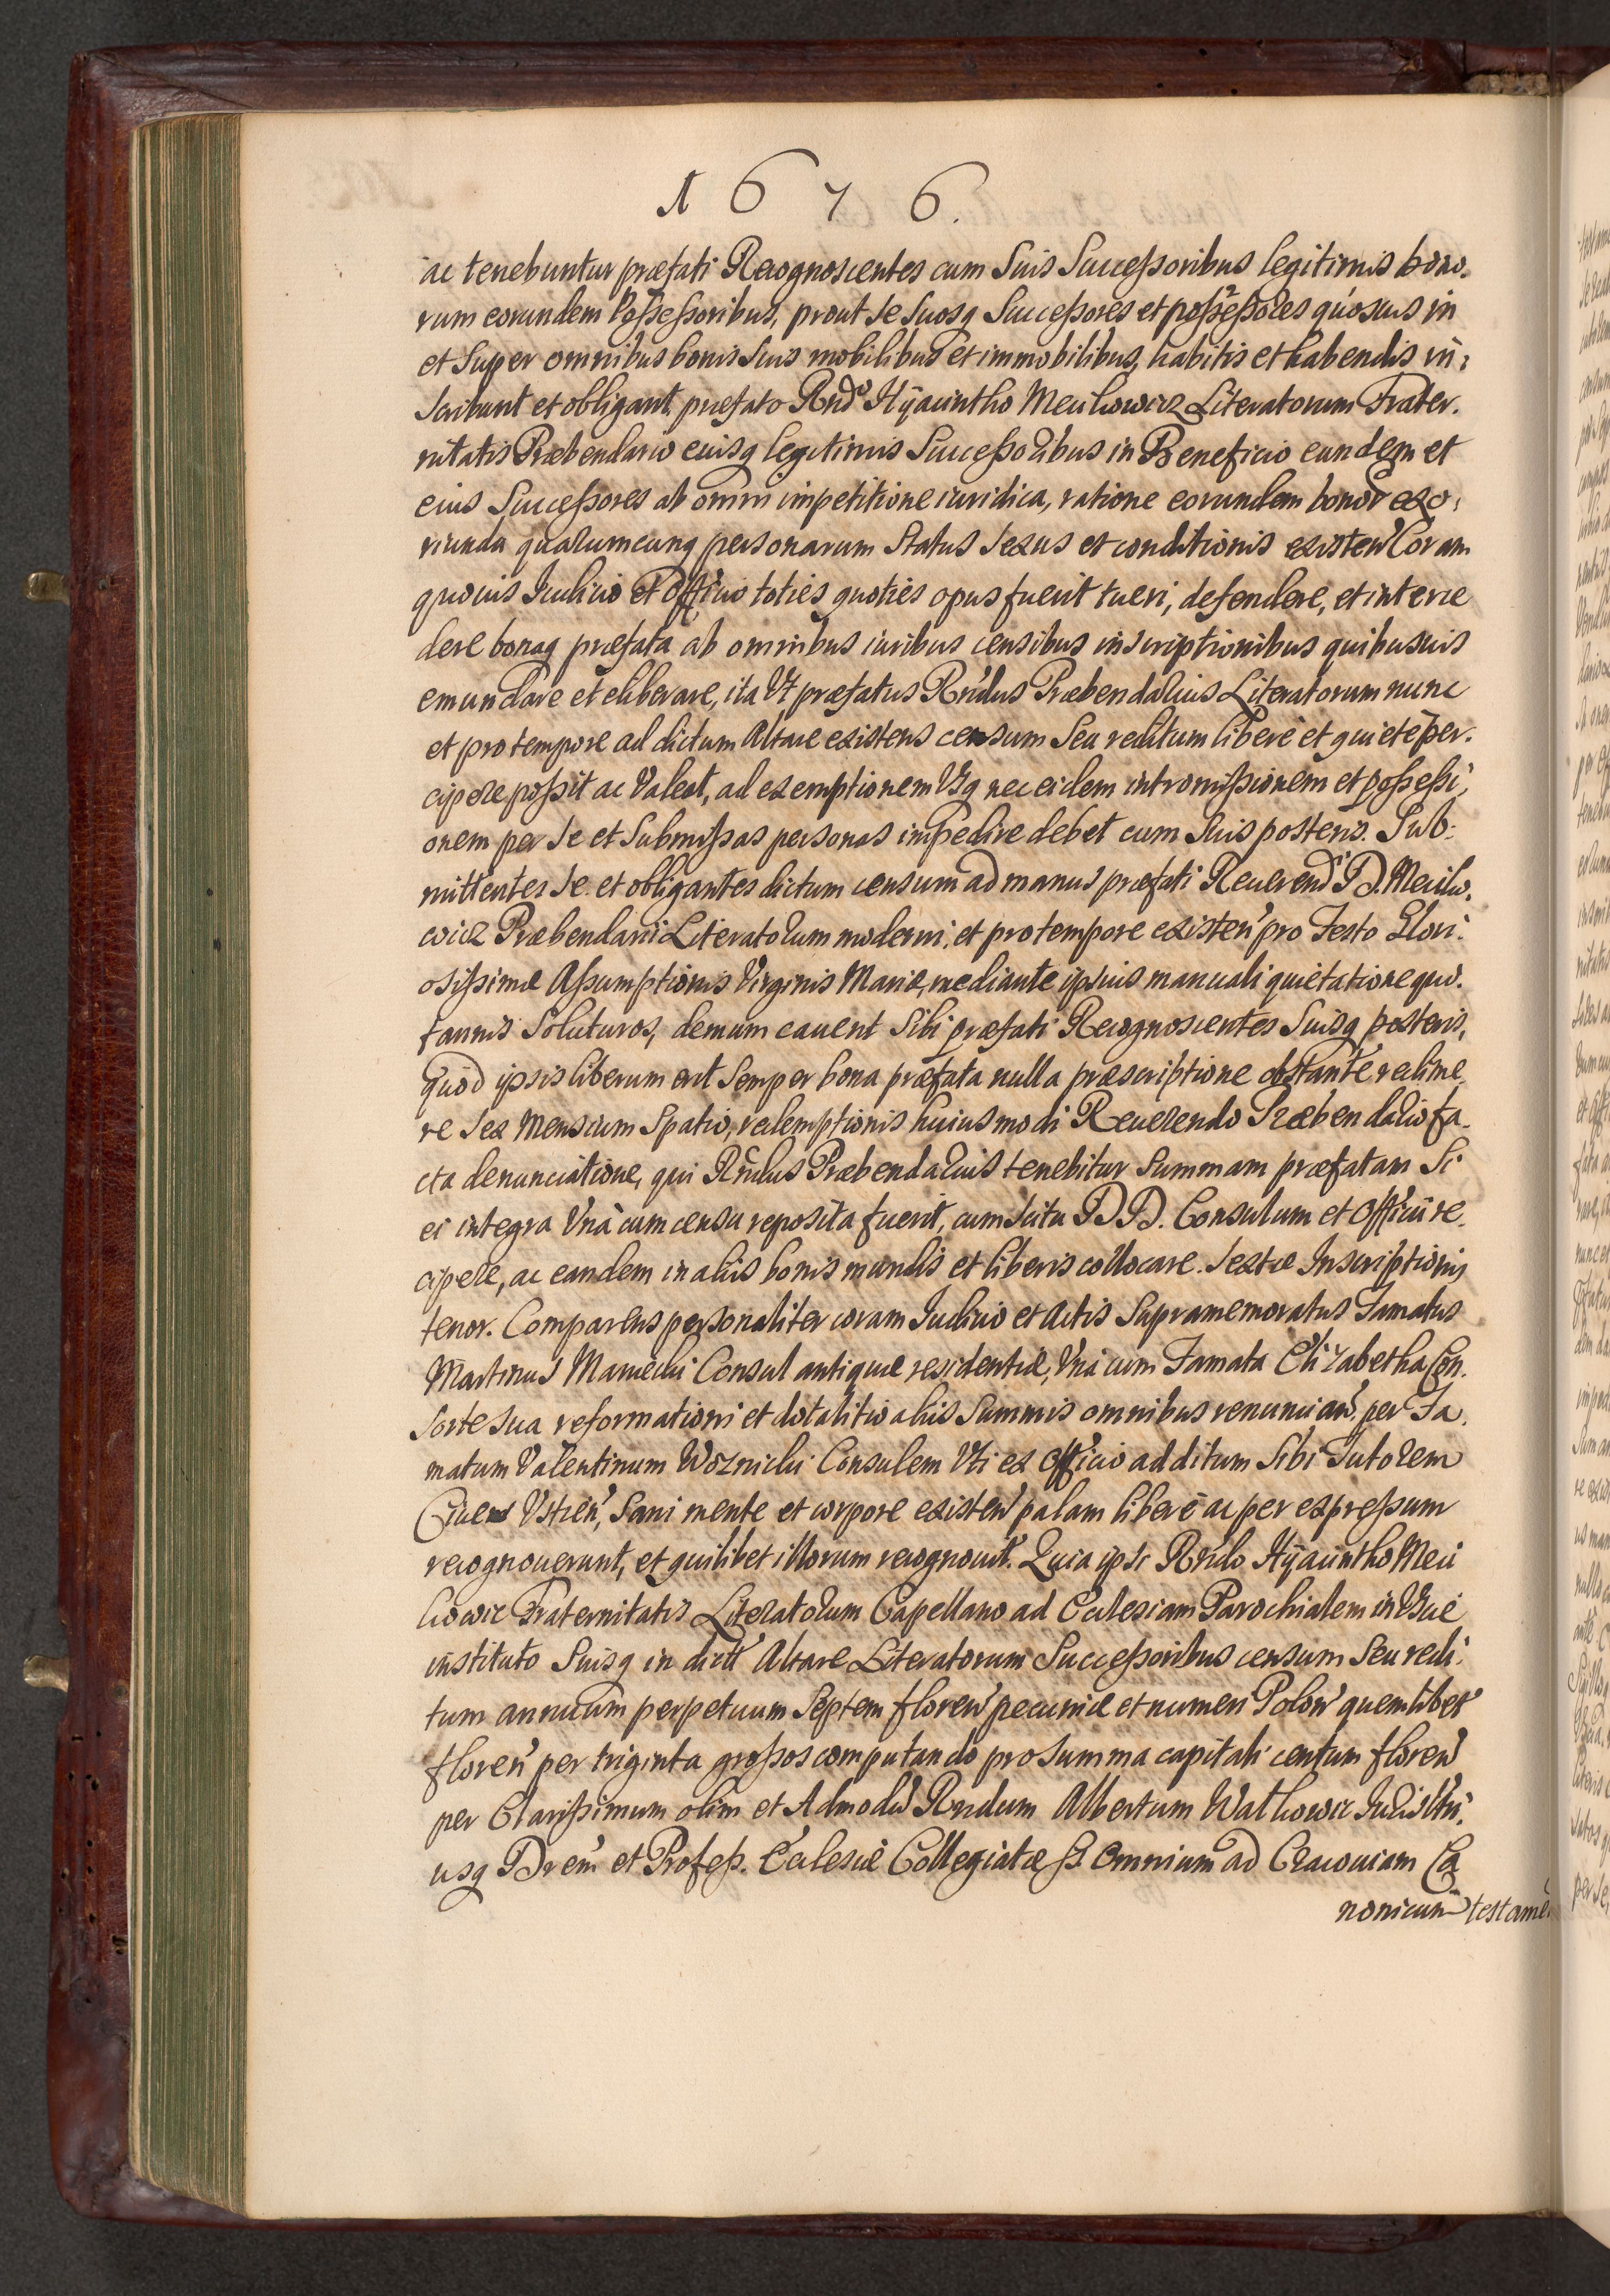 1676.
ac tenebuntur præfati Recognoscentes cum Suis Successoribus legitimis bono,
rum eorundem Possessoribus, prout Se Suosq Successores et possessores quosuis in
et Super omnibus bonis Suis mobilibus et immobilibus, habitis et habendis in,
Scribunt et obligant, præfato Rndo Hÿacintho Meculowicz Literatorum Frater,
nitatis Præbendario eiusq legitimis Successoribus in Beneficio eundem et
eius Successores ab omni impetitione iuridica, ratione eorundem bonor exo,
riunda qualumcunq personarum Status Sexus et conditionis existen̄ Coram
quouis Iudicio et Officio toties quoties opus fuerit tueri, defendere, et interce
dere bonaq præfata ab omnibus iuribus censibus inscriptionibus quibusuis
emundare et eliberare, ita Vt præfatus Rndus Præbendarius Literatorum nunc
et pro tempore ad dictum Altare existens censum Seu reditum liberè et quietè per,
cipere possit ac Valeat, ad exemptionem Vsq nec eidem intromissionem et possessi,
onem per Se et Submissas personas impedire debet cum Suis posteris. Sub,
mittentes Se et obligantes dictum censum ad manus præfati Reuerendi D. Meculo,
wicz Præbendarii Literatorum moderni, et pro tempore existen̄ pro Festo Glori,
osissimæ Assumptionis Virginis Mariæ, mediante ipsius manuali quietatione quo,
tannis Soluturos, demum cauent Sibi præfati Recognoscentes Suisq posteris,
quòd ipsis liberum erit Semper bona præfata nulla præscriptione obstante redime,
re Sex Mensium Spatio, redemptionis huiusmodi Reuerendo Præbendario fa,
cta denunciatione, qui Rndus Præbendarius tenebitur Summam præfatam Si
ei integra Vnà cum censu reposita fuerit, cum Scitu DD. Consulum et Officii re,
cipere, ac eandem in aliis bonis mundis et liberis collocare. Sextæ Inscriptionis
tenor. Comparens personaliter coram Iudicio et Actis Supramemoratus Famatus
Martinus Maniecki Consul antiquæ residentiæ, Vnà cum Famata Elizabetha Con,
Sorte Sua reformationi et dotalitio aliis Summis omnibus renuncian̄ per Fa,
matum Valentinum Woznicki Consulem Vti ex Officio additum Sibi Tutorem
Ciuem Vstien̄, Sani mente et corpore existen̄ palam liberè ac per expressum
recognouerunt, et quilibet illorum recognouit. Quia ipsi Rndo Hÿacintho Mecu
lowicz Fraternitatis Literatorum Capellano ad Ecclesiam Parochialem in Vscie
instituto Suisq in dict Altare Literatorum Successoribus censum Seu redi,
tum annuum perpetuum Septem floren̄ pecuniæ et numeri Polon̄ quemlibet
floren̄ per triginta grossos computando pro Summa capitali centum floren̄
per Clarissimum olim et Admodu Rndum Albertum Watlowicz Iuris Vtri,
usq Drem et Profess. Ecclesiæ Collegiatæ SS. Omnium ad Cracouiam Ca
nonicum testamen